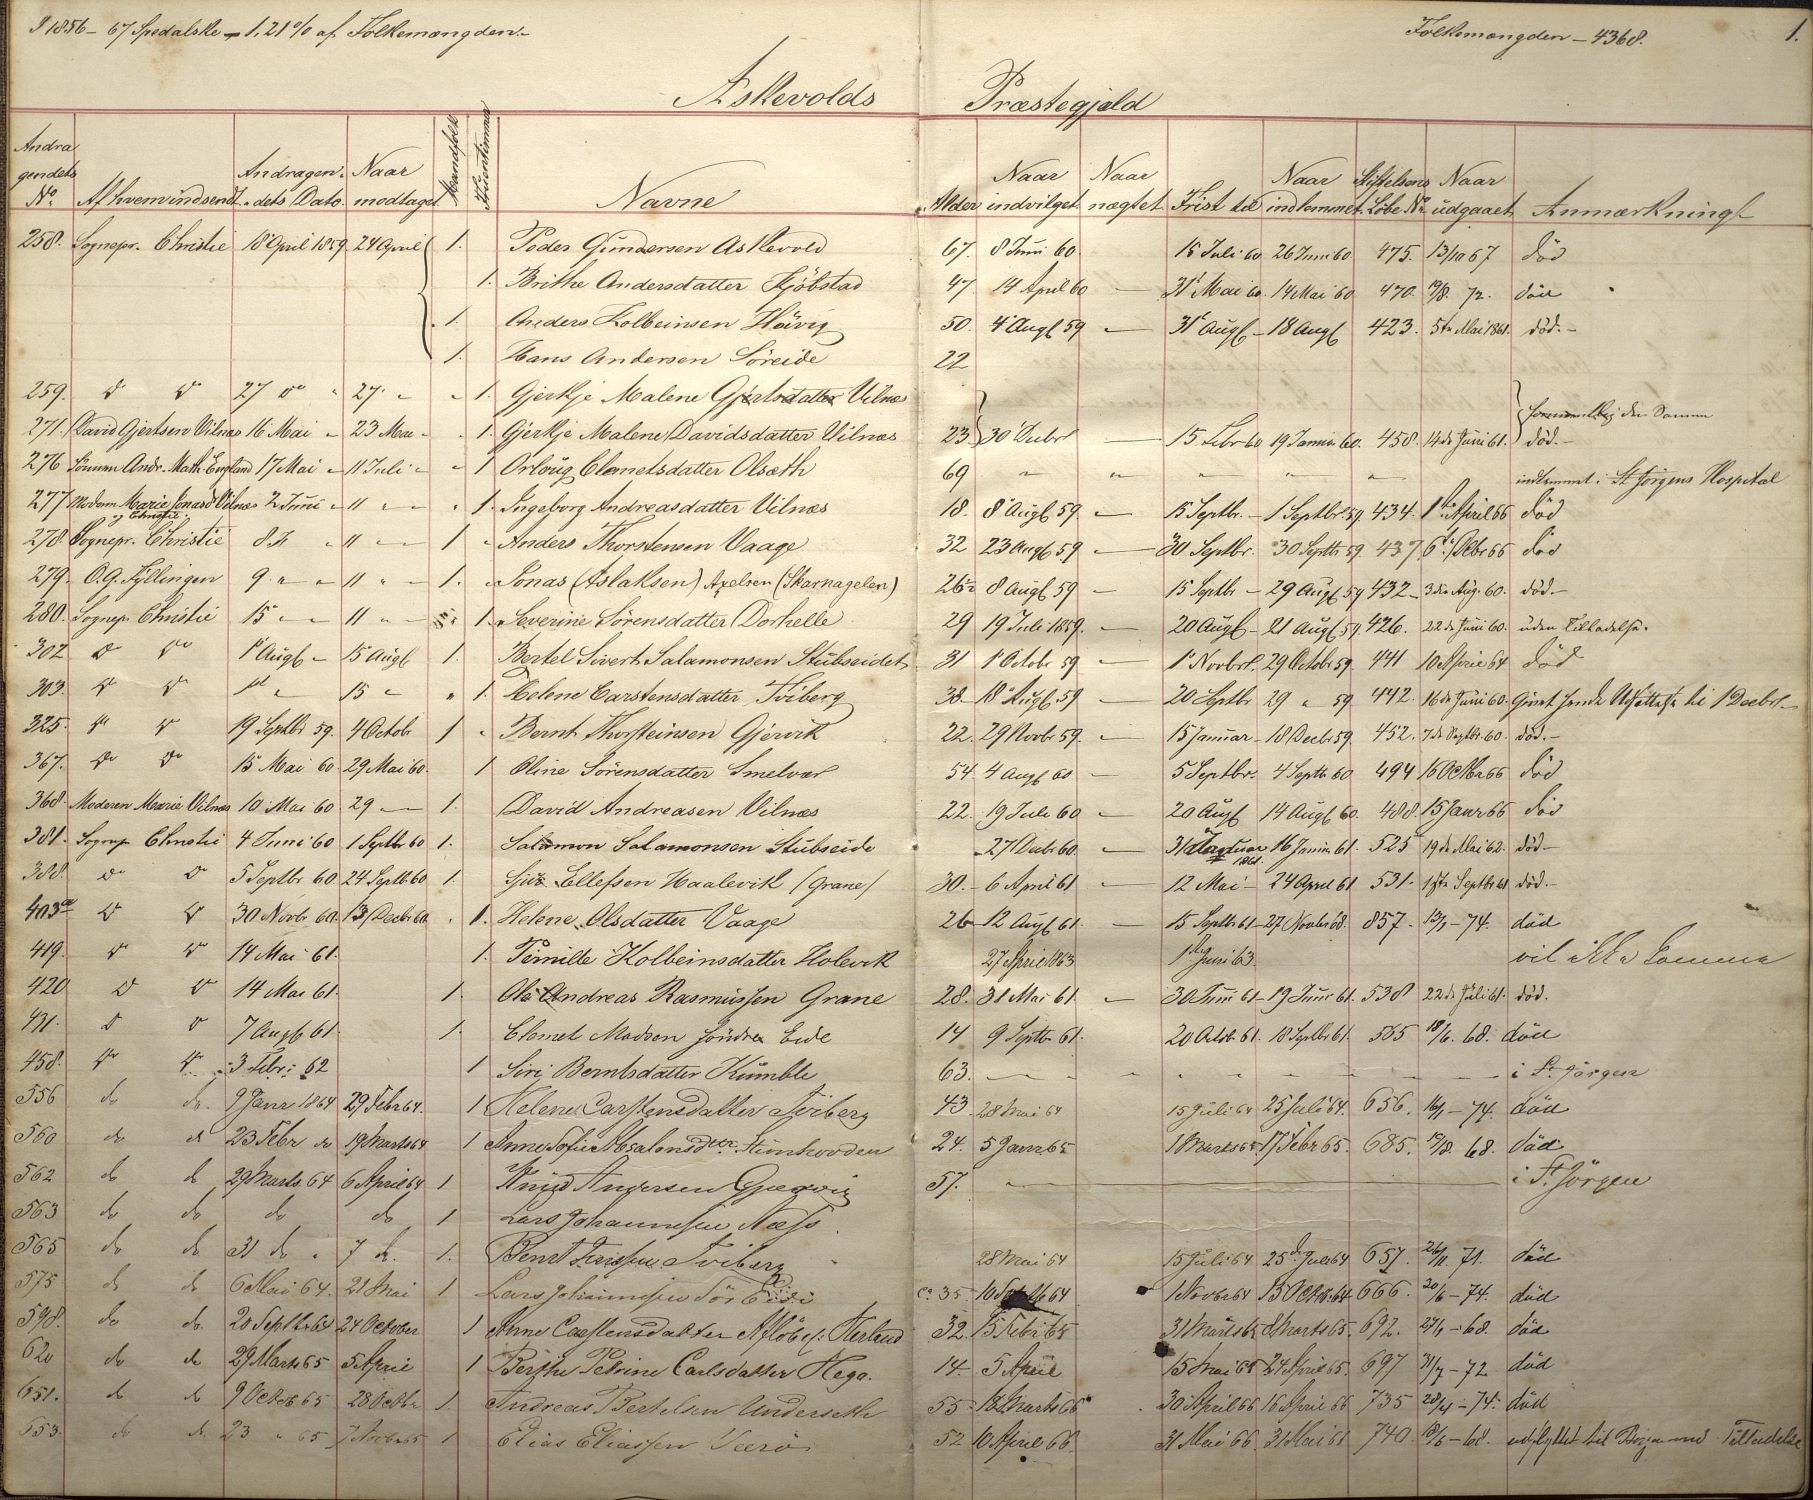 I 1856 – 67 Spedalske – 1,21% af Folkemængden.
Folkemængden – 4368.
1.
Askevolds Præstegjeld
Andragendets No. Af hvem indsendt Andragendets Dato Naar modtaget Mandfolk Fruentimmer Navne Alder Naar indvilget Naar nægtet Frist til Naar indkommet Stiftelsens Løbe No. Naar udgaaet Anmærkning
258. Sognepr. Christie 18 April 1859. 24 April 1. Peder Gundersen Askevold 67. 8 Juni 60. 15 Juli 60 26 Juni 60 475. 13/10 67 død
1. Brithe Andersdatter Kjöbstad 47. 14 April 60 — 31 Mai 60. 14 Mai 60. 470. 19/8. 72. död
1. Anders Kolbeinsen Hövig 50. 4 Augf 59 — 31 Augf – 18 Augf 423. 5te Mai 1861. död.–
1. Hans Andersen Söreide 22
259. do do 27 do 27 1. Gjerkje Malene Gjertsdatter Vilnæs
271. David Gjertsen Vilnæs 16 Mai – 23 Mai – 1. Gjerkje Malene Davidsdatter Vilnæs 23 30 — 15 Febr 60 19 Januar 60. 458. 14de Juni 61. den Samme död.–
276 Andr. Math. England 17 Mai – 11 Juli – 1 Orloüg Clemetsdatter Olsæth 69 indkommet i St Jörgens Hospital
277 Madam Marie Jonasd Vilnæs 2 Juni – 11 1. Ingeborg Andreasdatter Vilnæs 18. 8 Augf 59. — 15 Septbr. – 1 Septbr. 59. 434. 1 April 66 död
og Christie.
278. Sognepr. Christie 8 11 1 Anders Thorstensen Vaage 32 23 Augf 59. — 30 Septbr. 30 Septbr 59. 437. 6 Debr 66 död
279. O. G. Fyllingen 9 11 1. Jonas (Aslaksen) Axelsen (Skarnagelen) 26½ 8 Augf 59 — 15 Septbr – 29 Augf 59 432 3die Aug. 60. död.–
280. Sognep. Christie 15 11 1. Severine Sörensdatter Dorhelle 29 19 Juli 1859. — 20 Augf – 21 Augf 59. 426. 22de Juni 60. uden Tilladelse.
302 do do 1 Augf – 15 Augf 1. Bertel Sivert Salamonsen Stubseidet 31 1 Octobr 59 — 1 Novbr. 29 Octobr 59. 441 10 April 64 död
303. do do 15 1. Helene Carstensdatter Tviberg 38. 18 Augf 59 — 20 Septbr 29 59 442. 16de Juni 60. til 1 Decbr.
325. do do 19 Septbr 59. 4 Octobr 1 Bernt Thorsteinsen Gjervik 22. 29 Novbr 59. — 15 Januar – 18 Decbr 59. 452. 7de Septbr. 60. död.–
367. do do 15 Mai 60. 29 Mai 60. 1 Oline Sörensdatter Smelvær 54. 4 Augf 60 — 5 Septbr. 4 Septb 60 494 16 Octbr 66 död
368. Moderen Marie Vilnæs 10 Mai 60 29 1. David Andreasen Vilnæs 22. 19 Juli 60 — 20 Augf 14 Augf 60. 488. 15 Janr 66 död
381. Sognep Christie 4 Juni 60 1 Septbr 60 1. Salamon Salamonsen Stubseide 27 Decbr 60. — 31 Januar 1861. 16 Januar 61. 525 19de Mai 62. död–
388. do do 5 Septbr 60 24 Septb. 60 1. Ellefsen Haalevik (Grane) 30. – 6 April 61 — 12 Mai – 24 April 61 531. Septbr 61 död.–
403 do do 30 Novbr 60. 13 Decbr 60. 1. Helene Olsdatter Vaage 26 12 Augf 61. — 15 Septbr 61 – 27 Novbr 68. 857. 13/7 – 74. död
419. do do 14 Mai 61. 1. Pernille Kolbeinsdatter Holevik 27 April 1863 1 Juni 63. vil ikke komme
420 do do 14 Mai 61. 1. Ole Andreas Rasmussen Grane 28. 31 Mai 61. — 30 Juni 61 – 19 Juni 61. 538 22de Juli 61. död.
431. do do 7 Augf 61. 1. Clemet Madsen Söndre Eide 14 9 Septbr 61. 20 Octob. 61. 18 Septbr 61. 565 18/6. 68. död
458. do do 3 Febr. 62 1 Siri Berntsdatter Kumble 63. i St. Jörgen
556 do do. 9 Janr 1864 29 Febr 64. 1 Helene Carstensdatter Tviberg 43 28 Mai 64 15 Juli 64 25 Juli 64. 656. – 74. död
560 do do 23 Febr do 19 Marts 64 1 Anne Sofie Absalonsdtr. 24. 5 Janr 65 1 Marts 65 17 Febr 65. 685. 19/8. 68. död.
562 do do 29 Marts 64 6 April 64 1 Knud Andersen 57. i St. Jörgen
563 do do do do 1 Lars Johannesen Næss.
565 do do 31 do 7 do. 1. Bernt Tviberg 28 Mai 64 15 Juli 64 25 Juli 64 657. 26/11. 71. död
575 do do 6 Mai 64. 21 Mai 1 Lars Johannesen Sör Eide ca. 35 10 Septb 64 1 Novbr 64 13 Octbr. 64 666. 20/6 – 74. död
598. do do. 20 Septbr 64 24 October 1 Anne Carstensdatter Herland 32. 15 Febr 65 31 Marts 65 8 Marts 65. 692. 27/1 – 68. död
620 do do 29 Marts 65 5 April 1 Berthe Petrine Carlsdatter Hega. 14. 5 April 15 Mai 65 24 April 65. 697 31/7 – 72 död
651. do do 9 Octob 65 28 Octbr 1. Andreas Bertelsen Underseth 55 – 13 Marts 66 30 April 66 16 April 66 735 28/4 – 74. död
653. do do. 23 65 7 Novbr 65 1 Elias Eliassen Værö 52 10 April 66. 31 Mai 66. 31 Mai 66 740. 18/6 – 68. udflyttet til Bergen med Tilladelse